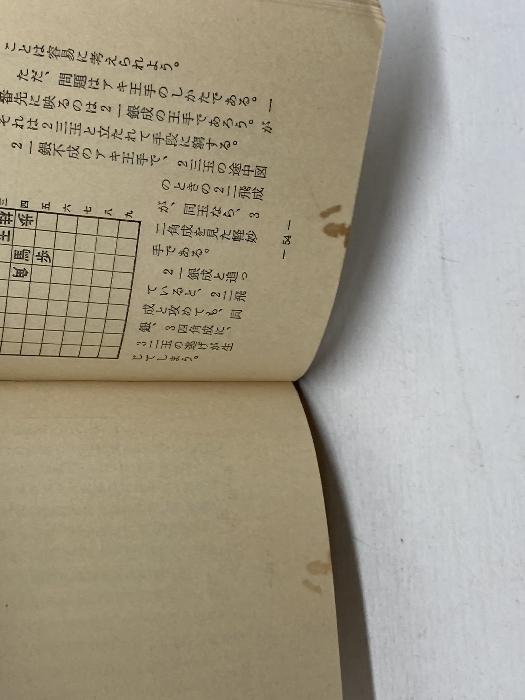 ことは容易に考えられよう。
ただ、問題はアキ王手のしかたである。一
番先に映るのは2一銀成の王手であろう。が
それは2三玉と立たれて手段に窮する。
2一銀不成のアキ王手で、2三玉の途中図
のときの2二飛成
が、同玉なら、3
二角成を見た軽妙
手である。
2一銀成と追っ
ていると、2二飛
成と攻めても、同
銀、3四角成に、
3二玉の逃げが生
じてしまう。
三
四
五
六
七
八
九
歩
馬
歩
— 54 —